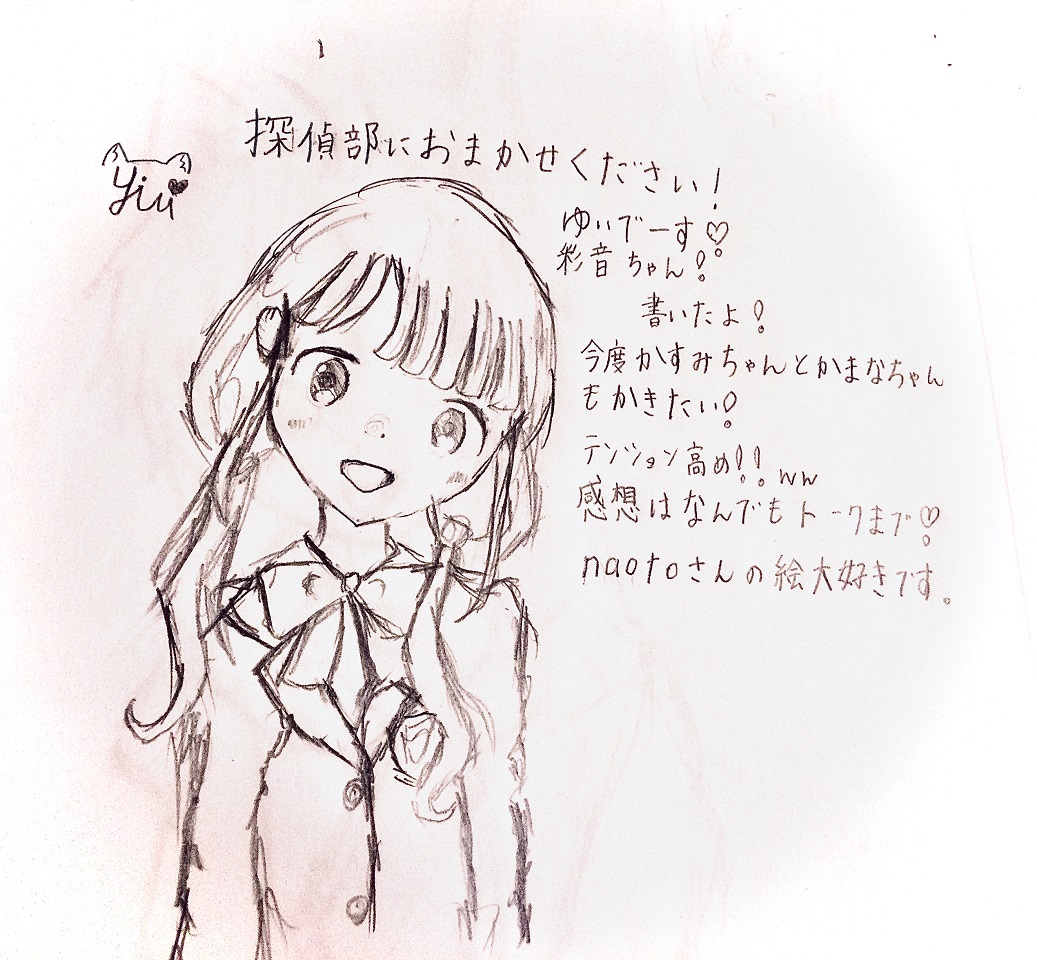 探偵部におまかせください!
Yiu
ゆいでーす♡
彩音ちゃん!
書いたよ!
今度かすみちゃんとかまなちゃん
もかきたい!
テンション高め!!ww
感想はなんでもトークまで♡
naotoさんの絵大好きです。